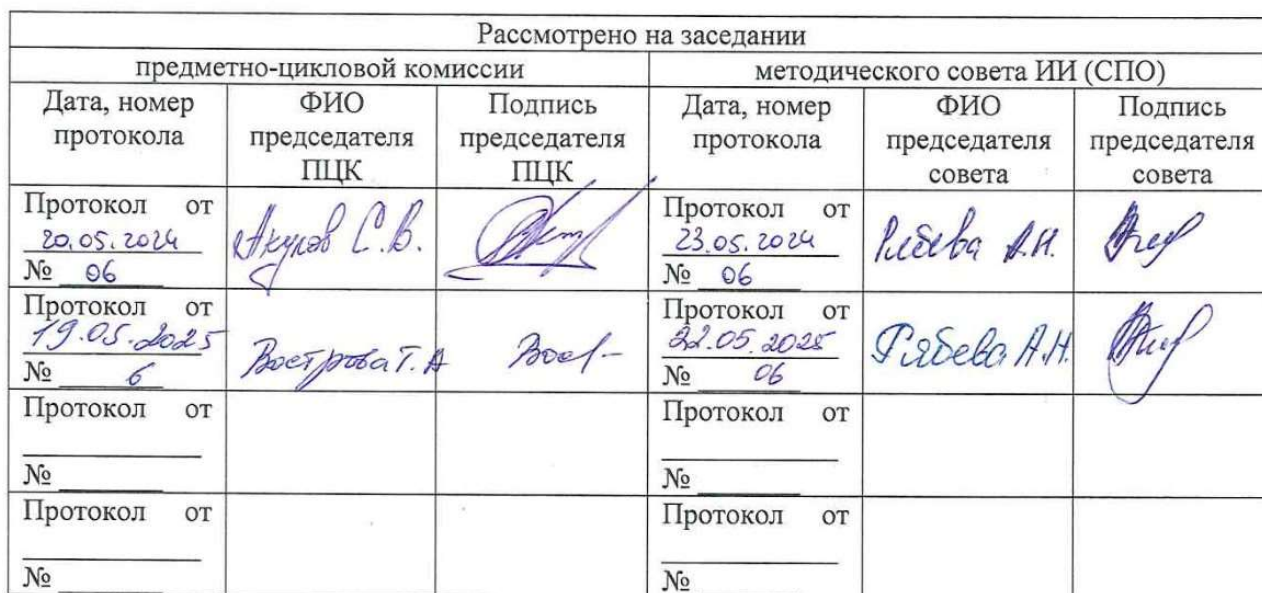 Рассмотрено на заседании
предметно-цикловой комиссии методического совета ИИ (СПО)
Дата, номер протокола ФИО председателя ПЦК Подпись председателя ПЦК Дата, номер протокола ФИО председателя совета Подпись председателя совета
Протокол от 20.05.2024 № 06 Акулов С.В. Протокол от 23.05.2024 № 06 Рябева А.Н.
Протокол от 19.05.2025 № 6 Вострова Т.А Протокол от 22.05.2025 № 06 Рябева А.Н.
Протокол от № Протокол от №
Протокол от № Протокол от №